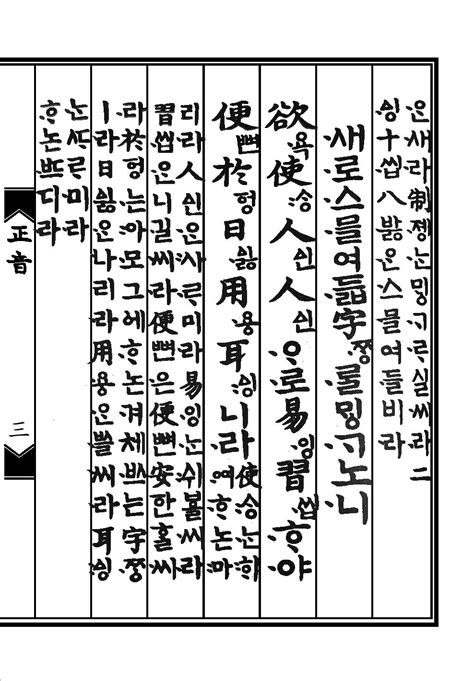 ᄋᆞᆫ새라制졩ᄂᆞᆫᄆᆡᇰᄀᆞᄅᆞ실씨라二
ᅀᅵᆼ十씹八바ᇙᄋᆞᆫ스믈여들비라
새로스믈여듧字ᄍᆞᆼᄅᆞᆯᄆᆡᇰᄀᆞ노니
欲욕使ᄉᆞᆼ人ᅀᅵᆫ人ᅀᅵᆫᄋᆞ로易잉習씹ᄒᆞ야
便뼌於ᅙᅥᆼ日ᅀᅵᇙ用용耳ᅀᅵᆼ니라使ᄉᆞᆼᄂᆞᆫᄒᆡ
여ᄒᆞ논마
리라人ᅀᅵᆫᄋᆞᆫ사ᄅᆞ미라易잉ᄂᆞᆫ쉬ᄫᅳᆯ씨라
習씹은니길씨라便뼌은便뼌安한ᄒᆞᆯ씨
라於ᅙᅥᆼ는아모그에ᄒᆞ논겨체ᄡᅳ는字ᄍᆞᆼ
ㅣ라日ᅀᅵᇙᄋᆞᆫ나리라用용ᄋᆞᆫᄡᅳᆯ씨라耳ᅀᅵᆼ
ᄂᆞᆫᄯᆞᄅᆞ미라
ᄒᆞ논ᄠᅳ디라
正音
三